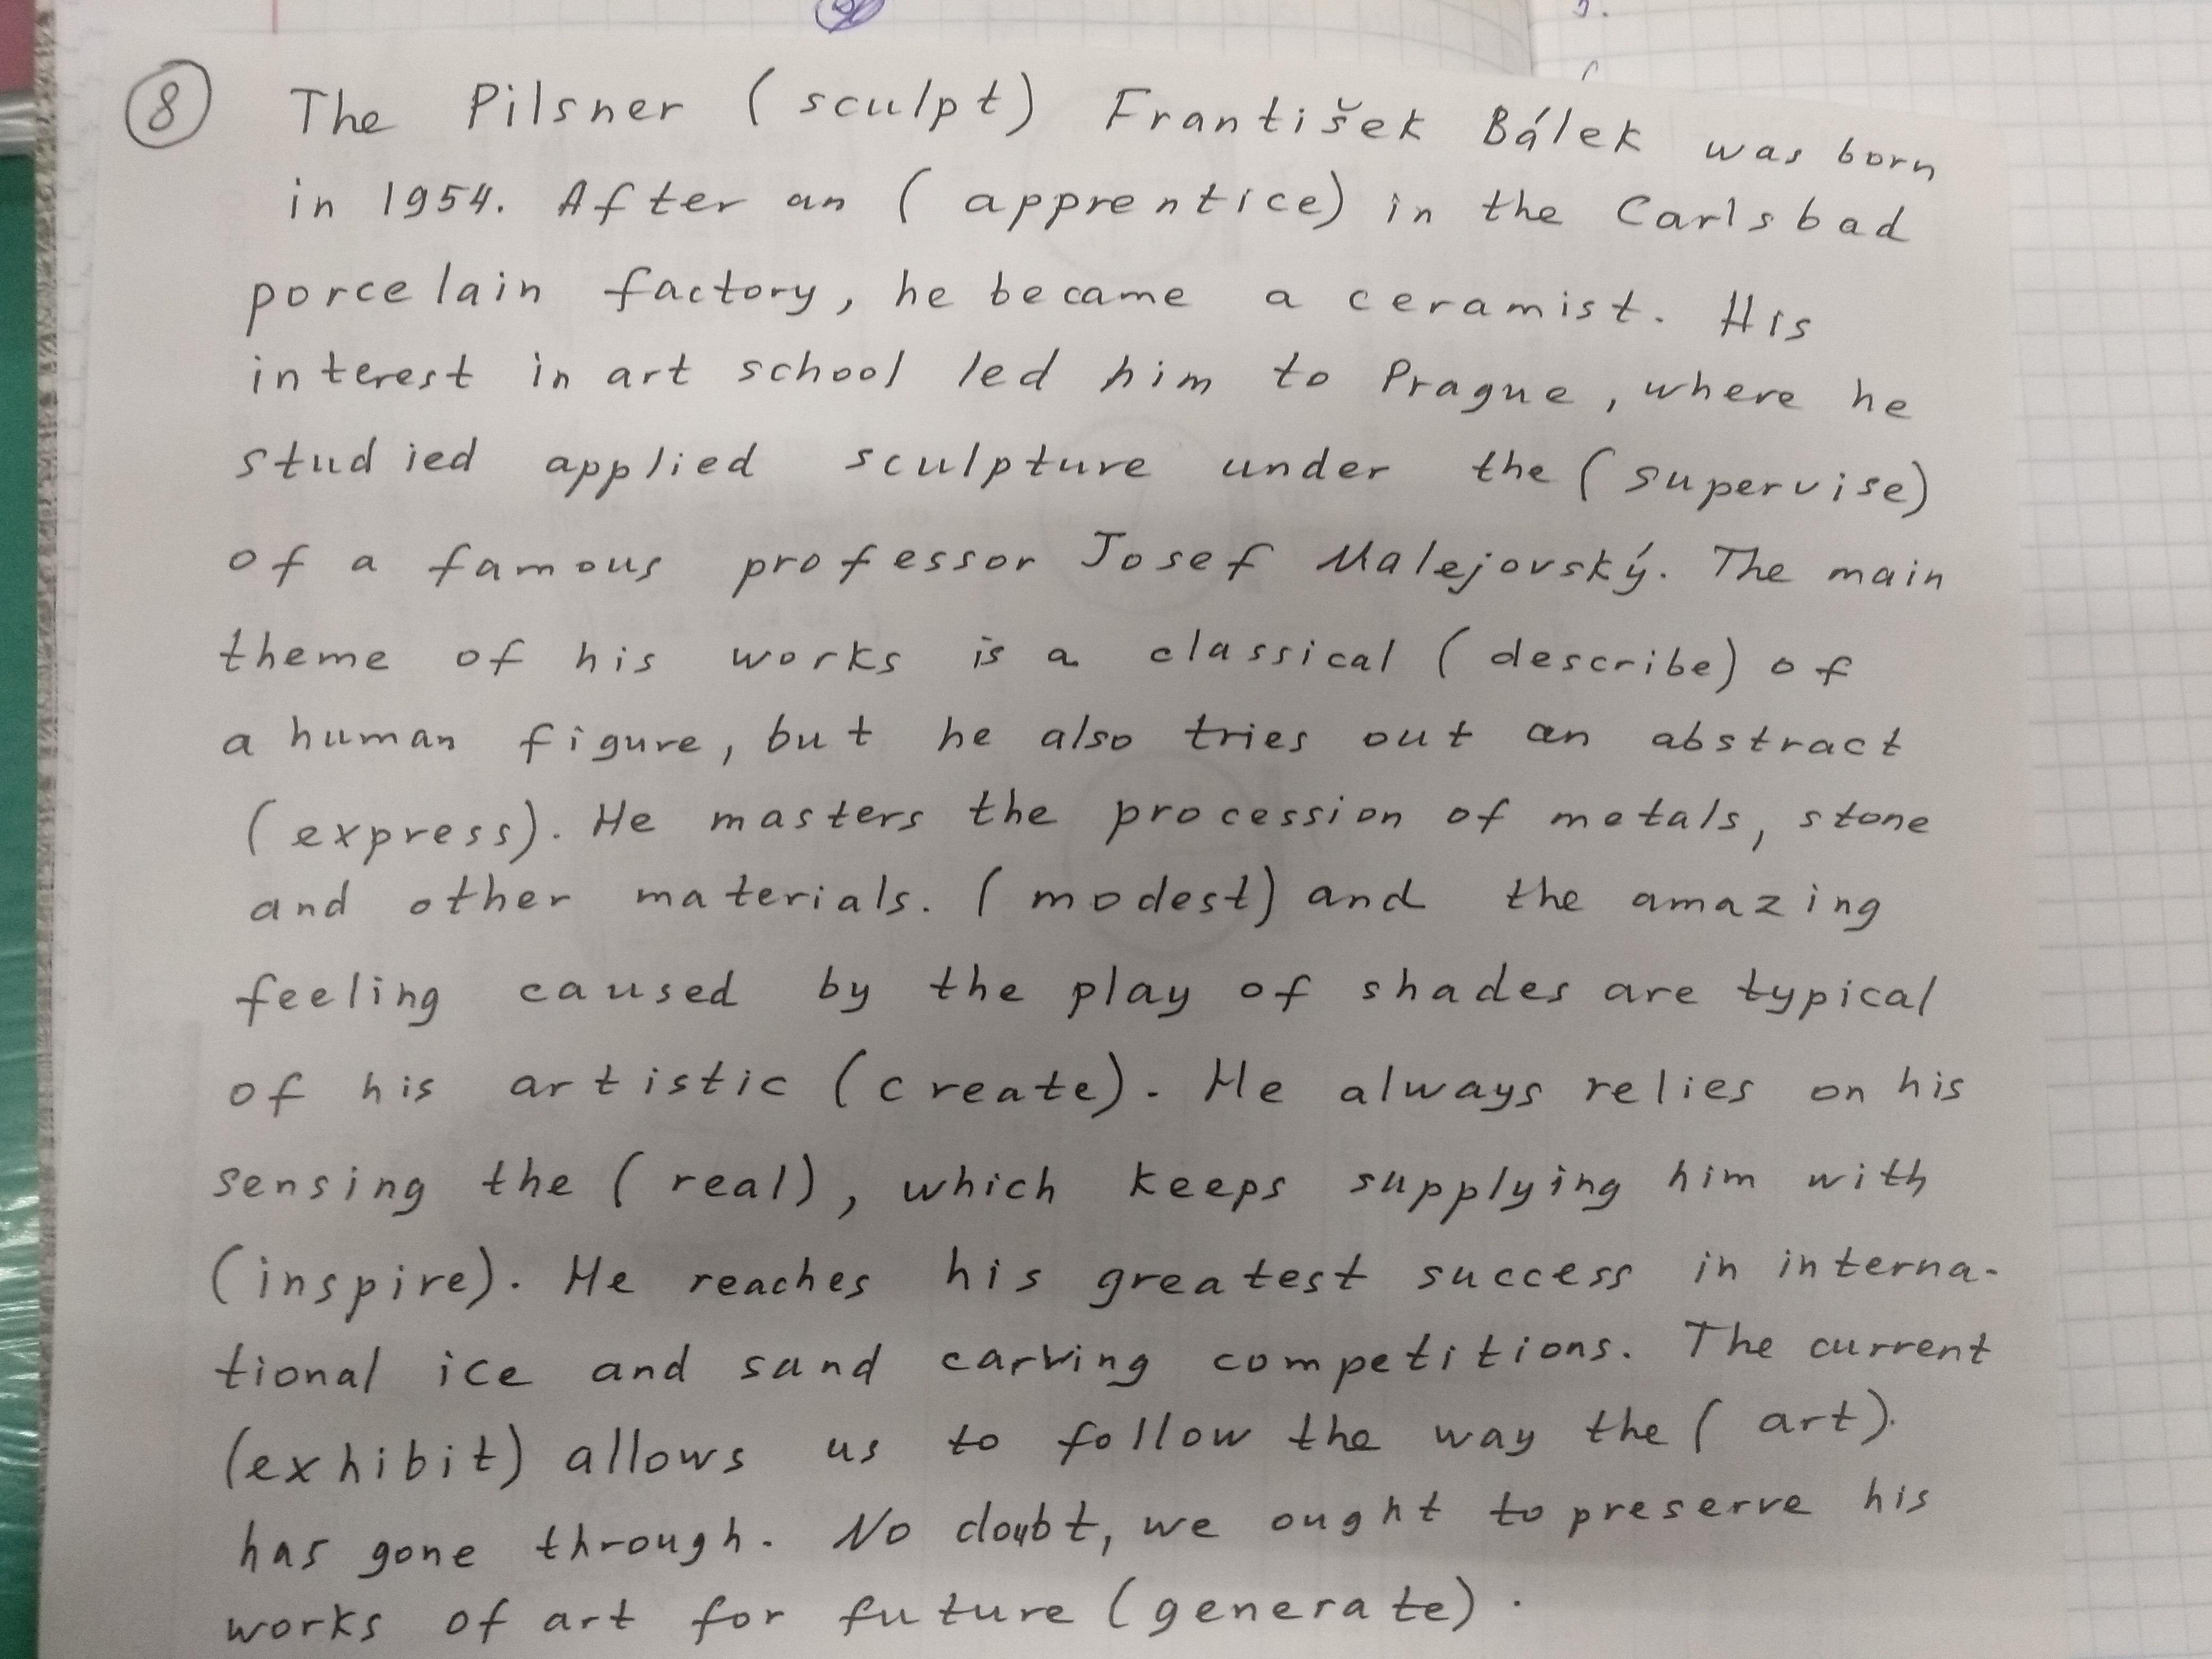 8 The Pilsner (sculpt) František Bálek was born
in 1954. After an (apprentice) in the Carlsbad
porcelain factory, he became a ceramist. His
interest in art school led him to Prague, where he
studied applied sculpture under the (supervise)
of a famous professor Josef Malejovský. The main
theme of his works is a classical (describe) of
a human figure, but he also tries out an abstract
(express). He masters the procession of metals, stone
and other materials. (modest) and the amazing
feeling caused by the play of shades are typical
of his artistic (create). He always relies on his
sensing the (real), which keeps supplying him with
(inspire). He reaches his greatest success in interna-
tional ice and sand carving competitions. The current
(exhibit) allows us to follow the way the (art).
has gone through. No doubt, we ought to preserve his
works of art for future (generate).